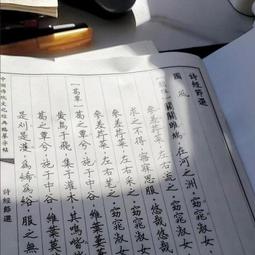 詩經節選
國風
關關雎鳩，在河之洲，窈窕淑女，
參差荇菜，左右流之，窈窕淑女，
求之不得，寤寐思服，悠哉悠哉
參差荇菜，左右采之，窈窕淑女
參差荇菜，左右芼之，窈窕淑女
葛覃
葛之覃兮，施于中谷，維葉萋萋
黃鳥于飛，集于灌木，其鳴喈喈
葛之覃兮，施于中谷，維葉
是刈是濩，為絺為綌，服之無
中國傳統文化經典臨摹字帖
詩經節選